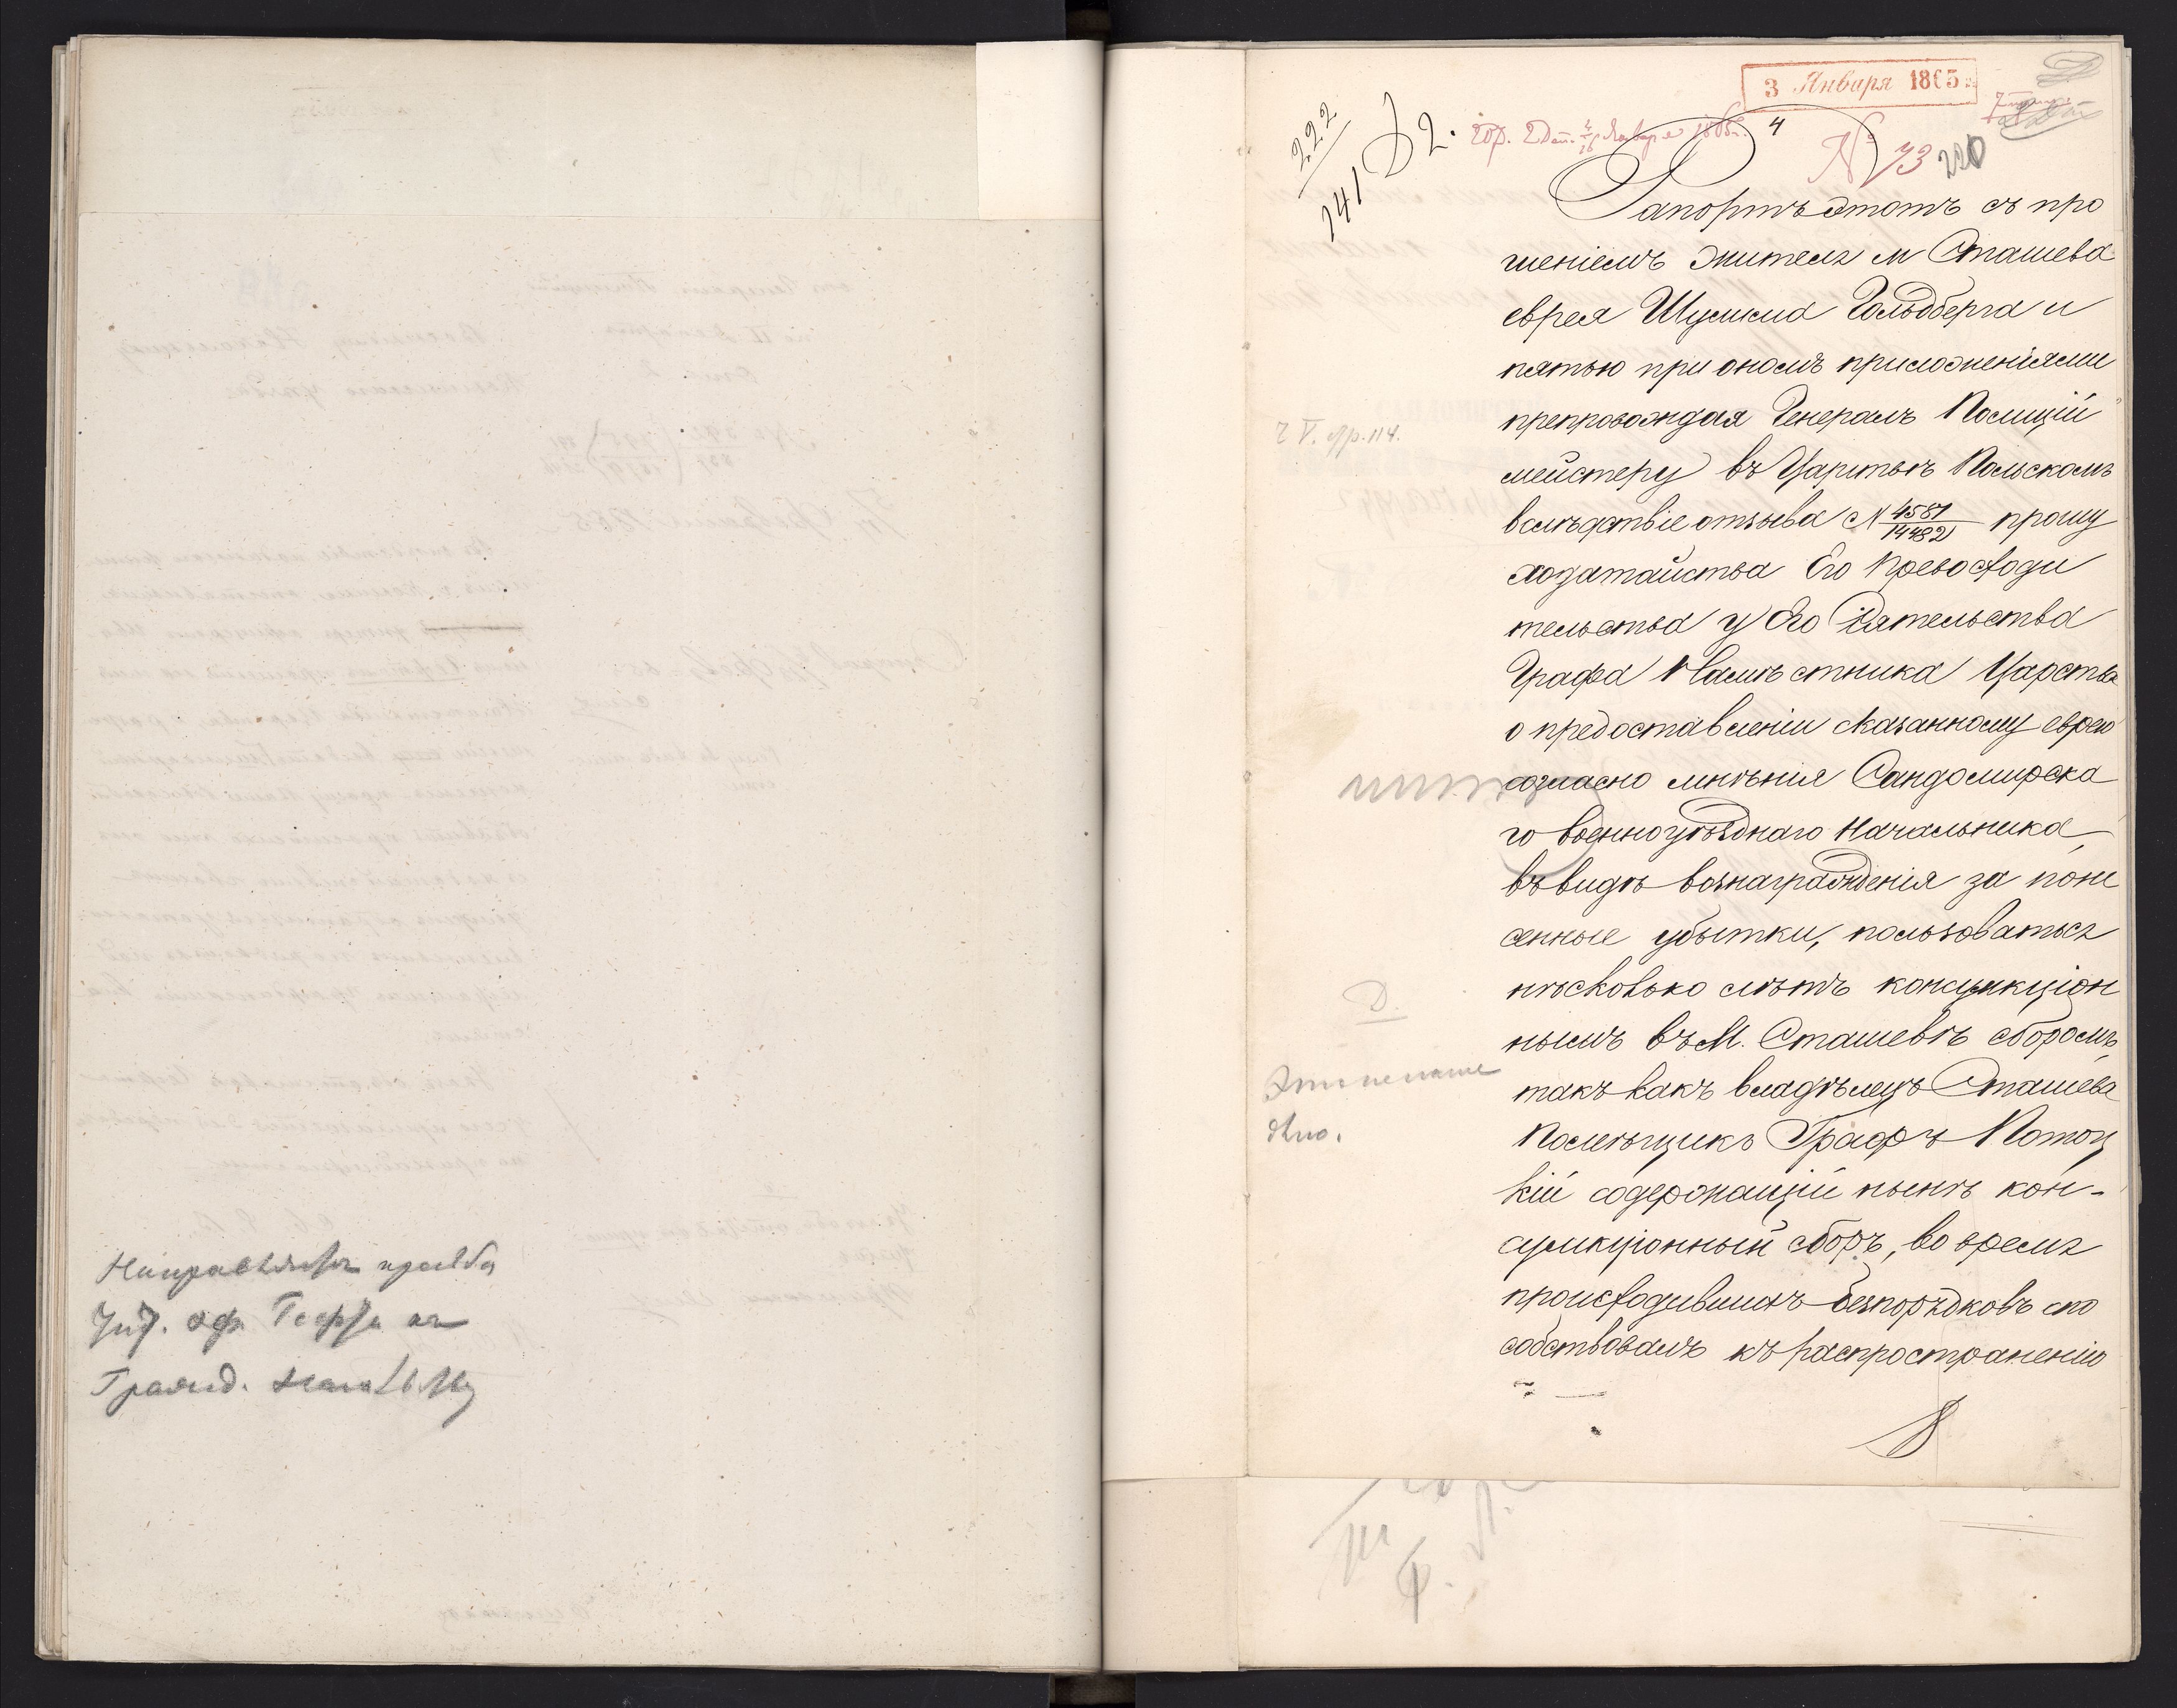 Направляется просьба
Унт. оф. Герфа къ
Гражд. Начальнику
3 Января 1865 г.
222
141 Д 2.
4
№ 73
220
Рапортъ этотъ съ про
шеніемъ жителя м Сташева
еврея Шулима Гольдберга и
пятью при ономъ приложеніями
препровождая Генералъ Полицій
ч V. стр. 114.
мейстеру въ Царствѣ Польскомъ
вслѣдствіе отзыва N 4581/14482 прошу
ходатайства Его Превосходи
тельства у Его Сіятельства
Графа Намѣстника Царства
о предоставленіи сказанному еврею
согласно мнѣнія Сандомирска
го Военноуѣзднаго Начальника,
въ видѣ вознагражденія за поне
сенные убытки, пользоваться
нѣсколько лѣтъ консумкціон
Д.
нымъ въ М. Сташевѣ сборомъ,
такъ какъ владѣлецъ Сташева
Это не наше
дѣло.
Помѣщикъ Графъ Потоц
кій содержащій нынѣ кон-
сумкціонный сборъ, во время
происходившихъ безпорядковъ спо
собствовалъ къ распространенію